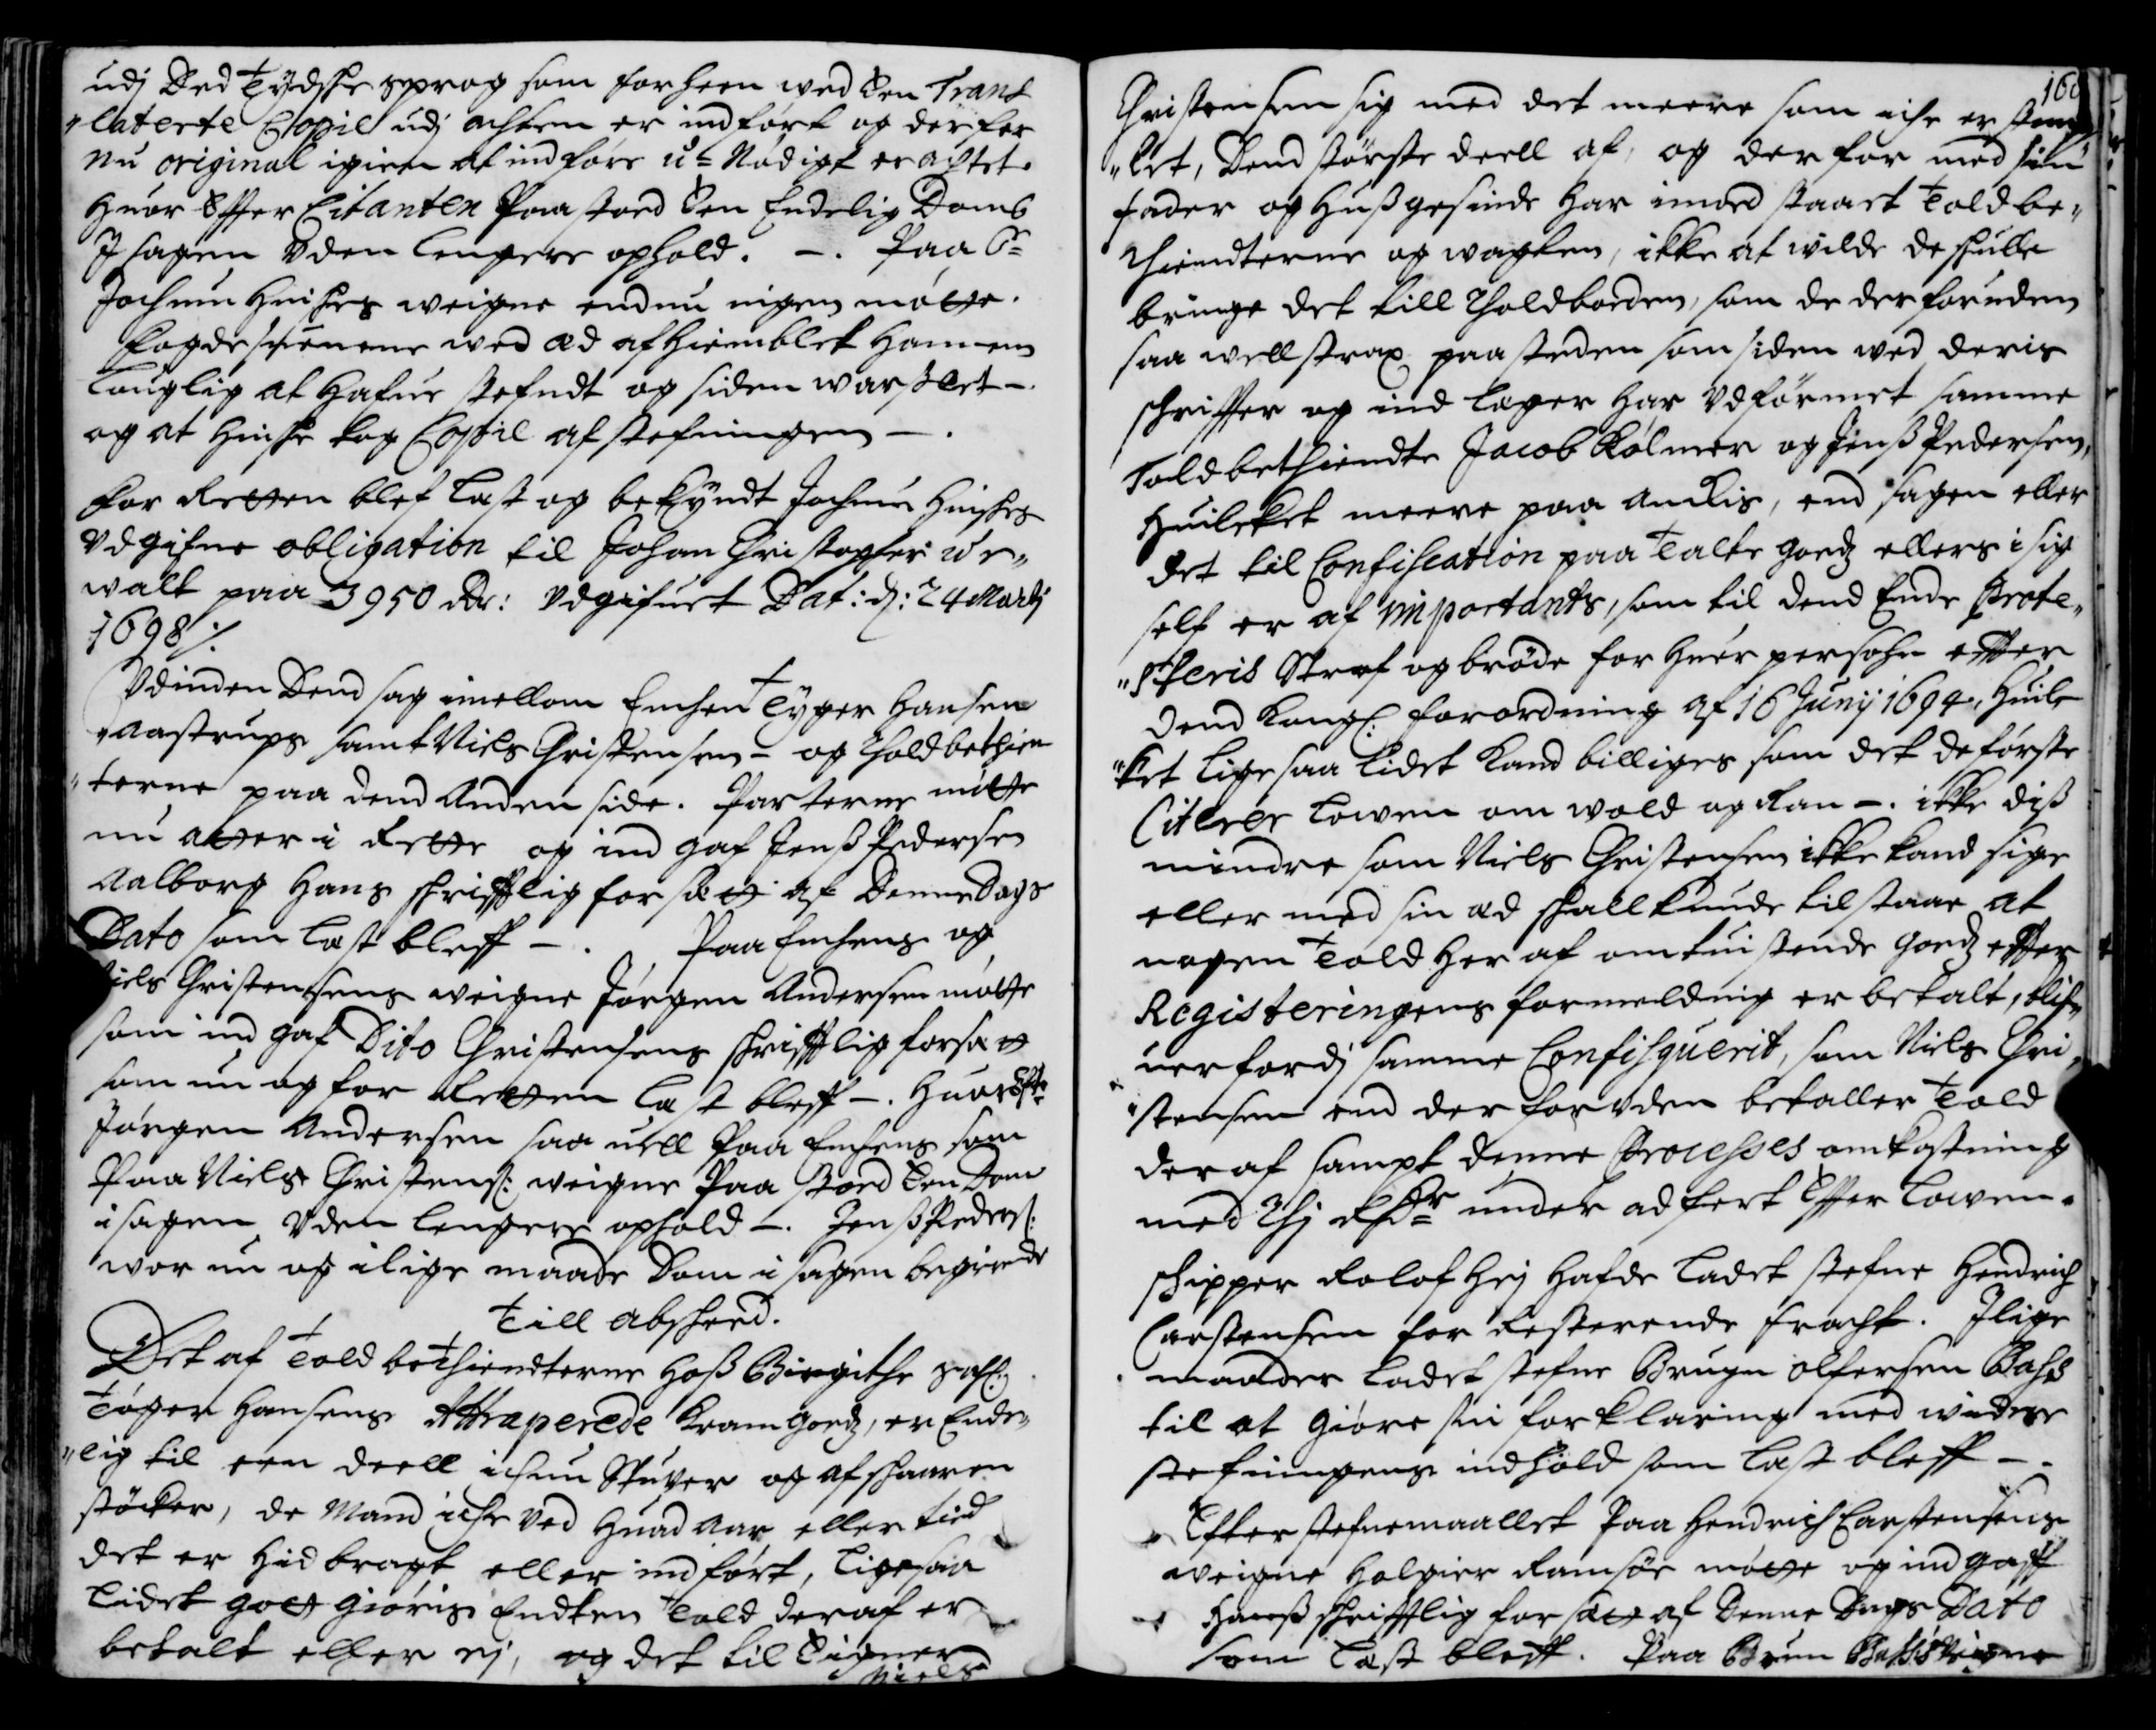 udj Ded Tydsche sprog som forheen wed den Trans
laterte Copie udj achten er indført og derfor
nu original igien at indføre u=Nødigt eractet.
Huor Effter Citanten Paastoed den Endelig Domb
J sagen Uden lengere ophold. —. Paa Sr
Jochum Hinsches weigne endnu ingen møtte.
Fogdesuenene wed æd afhiemblet Hannem
louglig at hafue stefndt og siden warßlet —.
og at Hinsche tog Copie af stefningen —.
For Retten blef læst og bekyndt Jochum Hinsches
Udgifne obligation til Johan Christopher We
walt paa 3950 dr: Udgifuet Dat: d: 24 Martj
1698 ⁒
Udinden Dend sag imellom Enchen Tyger Hansen
Aastrups samt Niels Christensen — og Tholdbethien
terne paa dend Anden side. Parterne møtte
nu atter i Rette og ind gaf Jenß Pedersen
Aalborg Hans schrifftlig forsætt af Denne Dags
Dato som læst bleff —. Paa Enchens og
Niels Christensens weigne Jørgen Andersen møtte
som ind gaf Dito Christensens schrifftlig forsætt
som nu og for Retten læst bleff —. Huor Effter
Jørgen Andersen saa well Paa Enchens som
Paa Niels Christens: weigne Paa stoed den Dom
i sagen Uden lengere ophold —. Jenß Peders:
war nu og ilige maade Dom i sagen begierende
Till Abscheed.
Det af Toldbethiendterne hoß Birgithe Sal:
Tøger Hansens Attraperede Kramgoedz, er Ende
lig til een deell ichun Stuver og afschaaren
støcker, de Mand iche ved huad Aar eller tied
det er hid bragt eller indført, ligesaa
lidet gott giøris Endten Told deraf er
betalt eller ej, og det til Eigner
Niels
160
Christensen sig med det meere som iche er stemp
let, Dend største deell af, og derfor med sin
fader og Hußgesinde har imod staaet Toldbe
thiendterne og wagten, ikke at wilde de schulle
bringe det till Tholdboeden, som de derforuden
saa well strax paa steden som siden wed deris
schriffter og ind læger har Udførmet samme
Toldbethiendte Jacob Kølmer og Jenß Pedersen,
Huilcket meere paa Ancis, end sagen eller
det til Confiscation paa talte goedz ellers i sig
self er af importants, som til dend Ende prote
steris Straf og brøde for huer persohn effter
dend Kongl: forordning af 16 Junij 1694. Huil
ket lige saa lidet kand billiges som det de første
Citerer Lowen om wold og Ran —. ikke diß
mindre som Niels Christensen ikke kand sige
eller med sin æd schall kunde tilstaae at
nogen Told her af omtuistende goedz effter
Registeringens formelding er betalt, blif
uer fordj samme Confisquerit, som Niels Chri
stensen end der foruden betaller Told
deraf sampt denne Processes omkostning
med Thj Rdr under adfert Effter Lowen.
Schipper Rolof Hej hafde ladet stefne Hendrich
Carstensen for Resterende fracht. Jlige
maader ladet stefne Brugn Olfersen Bass
til at giøre sin forklaring med widere
stefningens indhold som læst bleff —.
Efter stefnemaallet Paa Hendrich Carstensens
weigne Holgier Ramsøe møtte og ind gaff
Hanß schrifftlig forsætt af Denne Dags Dato
som læst bleff. Paa Brun Basses weigne